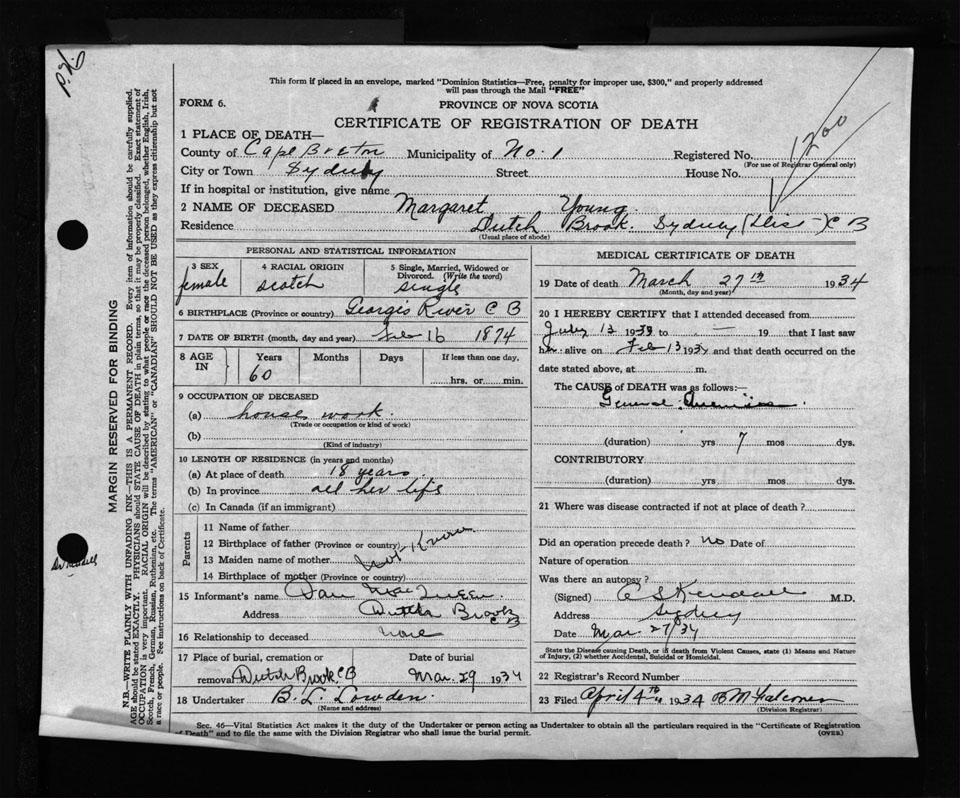 This form if placed in an envelope, marked "Dominion Statistics—Free, penalty for improper use, $300," and properly addressed
will pass through the Mail "FREE"
FORM 6.
PROVINCE OF NOVA SCOTIA
CERTIFICATE OF REGISTRATION OF DEATH
1200
1 PLACE OF DEATH—
County of Cape Breton Municipality of No. 1 Registered No.
(For use of Registrar General only)
City or Town Sydney Street House No.
If in hospital or institution, give name
2 NAME OF DECEASED Margaret Young
Residence Dutch Brook. Sydney (Dis -) C B
(Usual place of abode)
PERSONAL AND STATISTICAL INFORMATION
3 SEX 4 RACIAL ORIGIN 5 Single, Married, Widowed or
Divorced. (Write the word)
female scotch single
6 BIRTHPLACE (Province or country) Georges River C B
7 DATE OF BIRTH (month, day and year) Feb 16 1874
8 AGE IN Years Months Days If less than one day.
60 hrs. or min.
9 OCCUPATION OF DECEASED
(a) house work.
(Trade or occupation or kind of work)
(b)
(Kind of industry)
10 LENGTH OF RESIDENCE (in years and months)
(a) At place of death 18 years
(b) In province all her life
(c) In Canada (if an immigrant)
Parents
11 Name of father
12 Birthplace of father (Province or country)
13 Maiden name of mother Not Known
14 Birthplace of mother (Province or country)
15 Informant's name Dan
Address Dutch Brook
C B
16 Relationship to deceased none
17 Place of burial, cremation or Date of burial
removal Dutch Brook C B Mar. 29 1934
18 Undertaker B. L. Lowden
(Name and address)
MEDICAL CERTIFICATE OF DEATH
19 Date of death March 27th 1934
(Month, day and year)
20 I HEREBY CERTIFY that I attended deceased from
July 12 1933 to — 19 that I last saw
her alive on Feb 13 1934 and that death occurred on the
date stated above, at m.
The CAUSE of DEATH was as follows:—
General
(duration) yrs 7 mos dys.
CONTRIBUTORY
(duration) yrs mos dys.
21 Where was disease contracted if not at place of death?
Did an operation precede death? no Date of
Nature of operation
Was there an autopsy?
(Signed) Kendall M.D.
Address Sydney
Date Mar. 27/34
State the Disease causing Death, or in death from Violent Causes, state (1) Means and Nature
of Injury, (2) whether Accidental, Suicidal or Homicidal.
22 Registrar's Record Number
23 Filed April 4th 1934 B M Falconer
(Division Registrar)
Sec. 46—Vital Statistics Act makes it the duty of the Undertaker or person acting as Undertaker to obtain all the particulars required in the "Certificate of Registration
of Death" and to file the same with the Division Registrar who shall issue the burial permit.
(OVER)
MARGIN RESERVED FOR BINDING
N.B.—WRITE PLAINLY WITH UNFADING INK—THIS IS A PERMANENT RECORD. Every item of information should be carefully supplied.
AGE should be stated EXACTLY. PHYSICIANS should STATE CAUSE OF DEATH in plain terms, so that it may be properly classified. Exact statement of
OCCUPATION is very important. RACIAL ORIGIN will be described by stating to what people or race the deceased person belonged, whether English, Irish,
Scotch, French, German, Russian, Ruthenian, etc. The terms "AMERICAN" or "CANADIAN" SHOULD NOT BE USED as they express citizenship but not
a race or people. See instructions on back of Certificate.